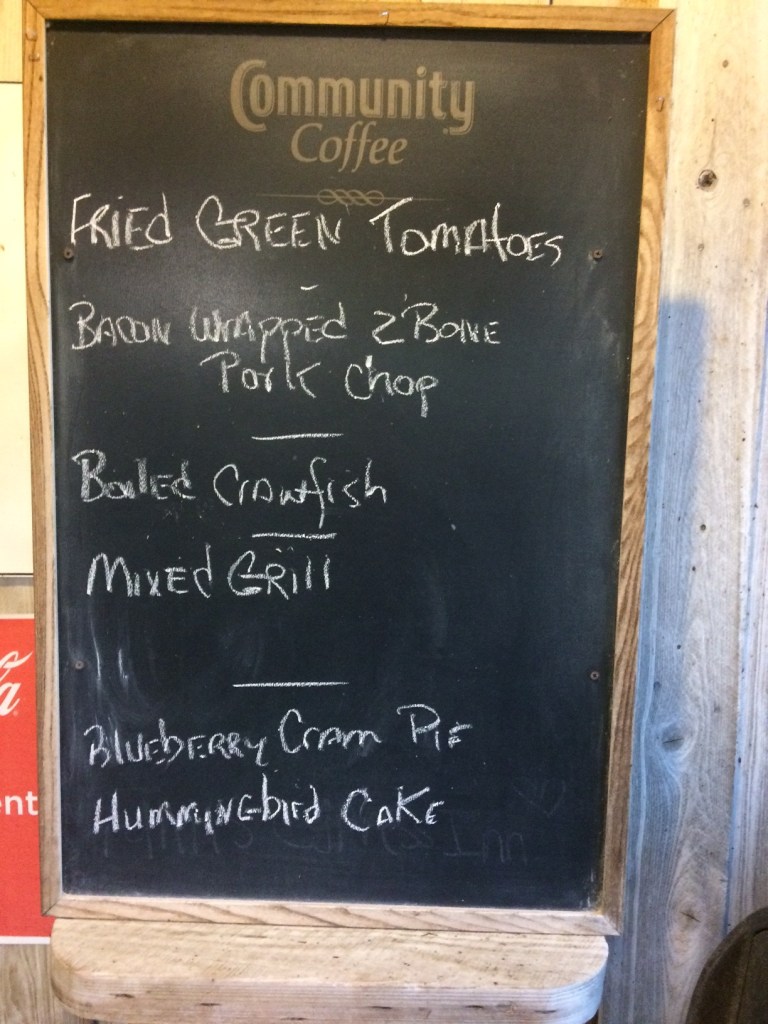 Community
Coffee
FRIEd GREEN TOMATOES
BACON WRAPPEd 2 BONE
Pork Chop
Boiled Crawfish
MIXEd GRill
BLUEBERRY Cream PiE
HUMMINGbird CAKE
Inn
a
ent